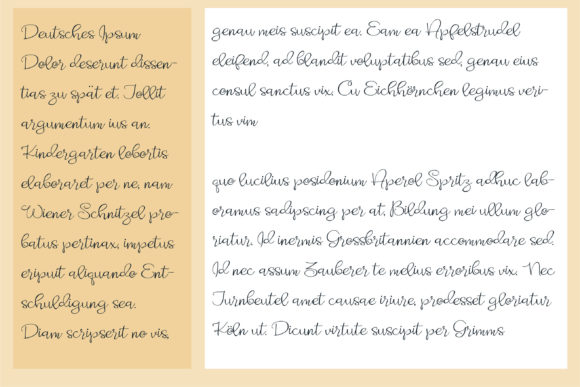 Deutsches Ipsum
Dolor deserunt dissen-
tias zu spät et. Tollit
argumentum ius an.
Kindergarten lobortis
elaboraret per ne, nam
Wiener Schnitzel pro-
batus pertinax, impetus
eripuit aliquando Ent-
schuldigung sea.
Diam scripserit no vis,
genau meis suscipit ea. Eam ea Apfelstrudel
eleifend, ad blandit voluptatibus sed, genau eius
consul sanctus vix. Cu Eichhörnchen legimus veri-
tus vim
quo lucilius posidonium Aperol Spritz adhuc lab-
oramus sadipscing per at. Bildung mei ullum glo-
riatur. Id inermis Grossbritannien accommodare sed.
Id nec assum Zauberer te melius erroribus vix. Nec
Turnbeutel amet causae iriure, prodesset gloriatur
Köln ut. Dicunt virtute suscipit per Grimms